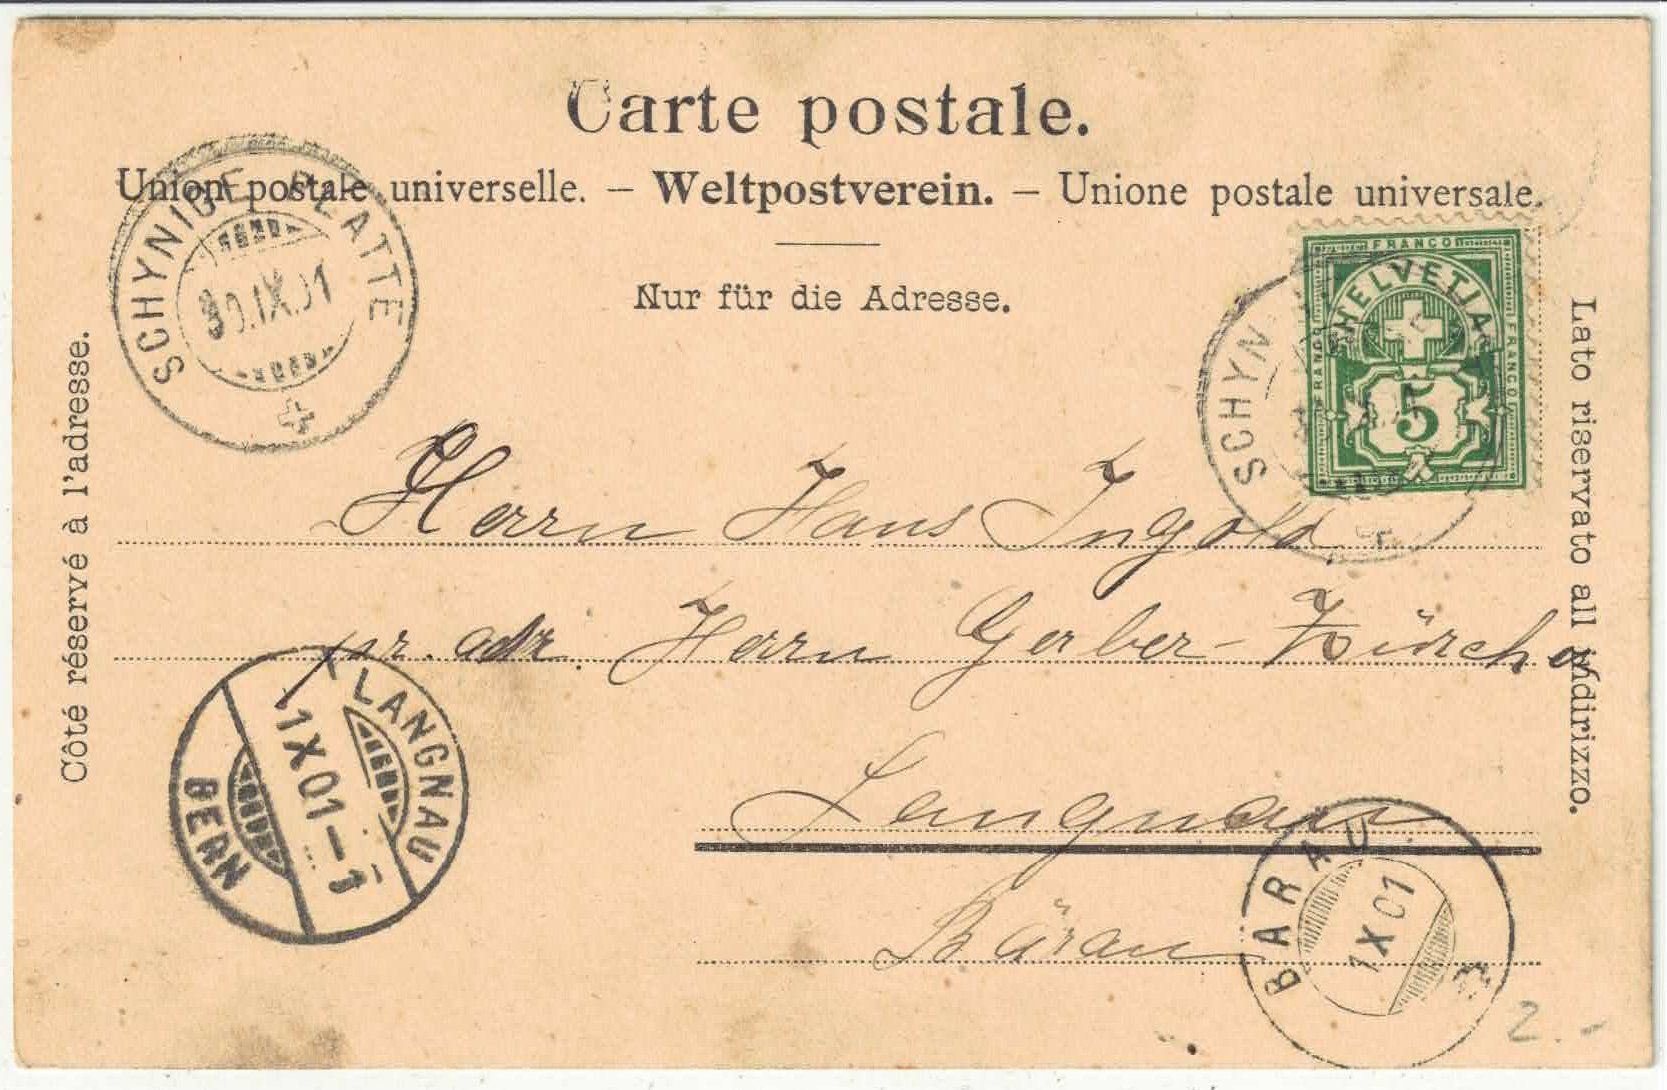 Carte postale.
Union postale universelle. – Weltpostverein. – Unione postale universale.
Nur für die Adresse.
Côté réservé à l'adresse.
Lato riservato all indirizzo.
SCHYNIGE PLATTE
30.IX.01
FRANCO
FRANCO
FRANCO
HELVETIA
5
SCHYN
Herrn Hans Ingold
pr. adr. Herrn Gerber-Zürcher
Langnau
Bärau
LANGNAU
1X01–1
BERN
BARAU
1X01
2.-